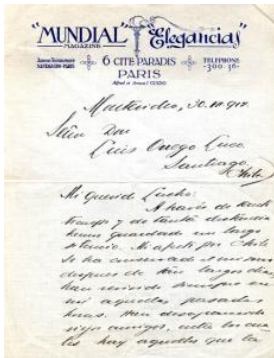 "MUNDIAL" "Elegancias"
MAGAZINE
6 CITÉ PARADIS
TELEPHONE
300.36
PARIS
Alfred et Armand GUIDO
Montevideo,
Señor Don
Luis Orrego Luco
Santiago
Chile
Mi querido Luisho:
A través de tanto
tiempo y de tanta distancia
hemos guardado un largo
silencio. Mi afecto por Chile
se ha conservado el mismo
después de tan largos días
han revivido siempre en
mí aquellas pasadas
horas. Han desaparecido
viejos amigos, entre los cua
les hay aquellos que